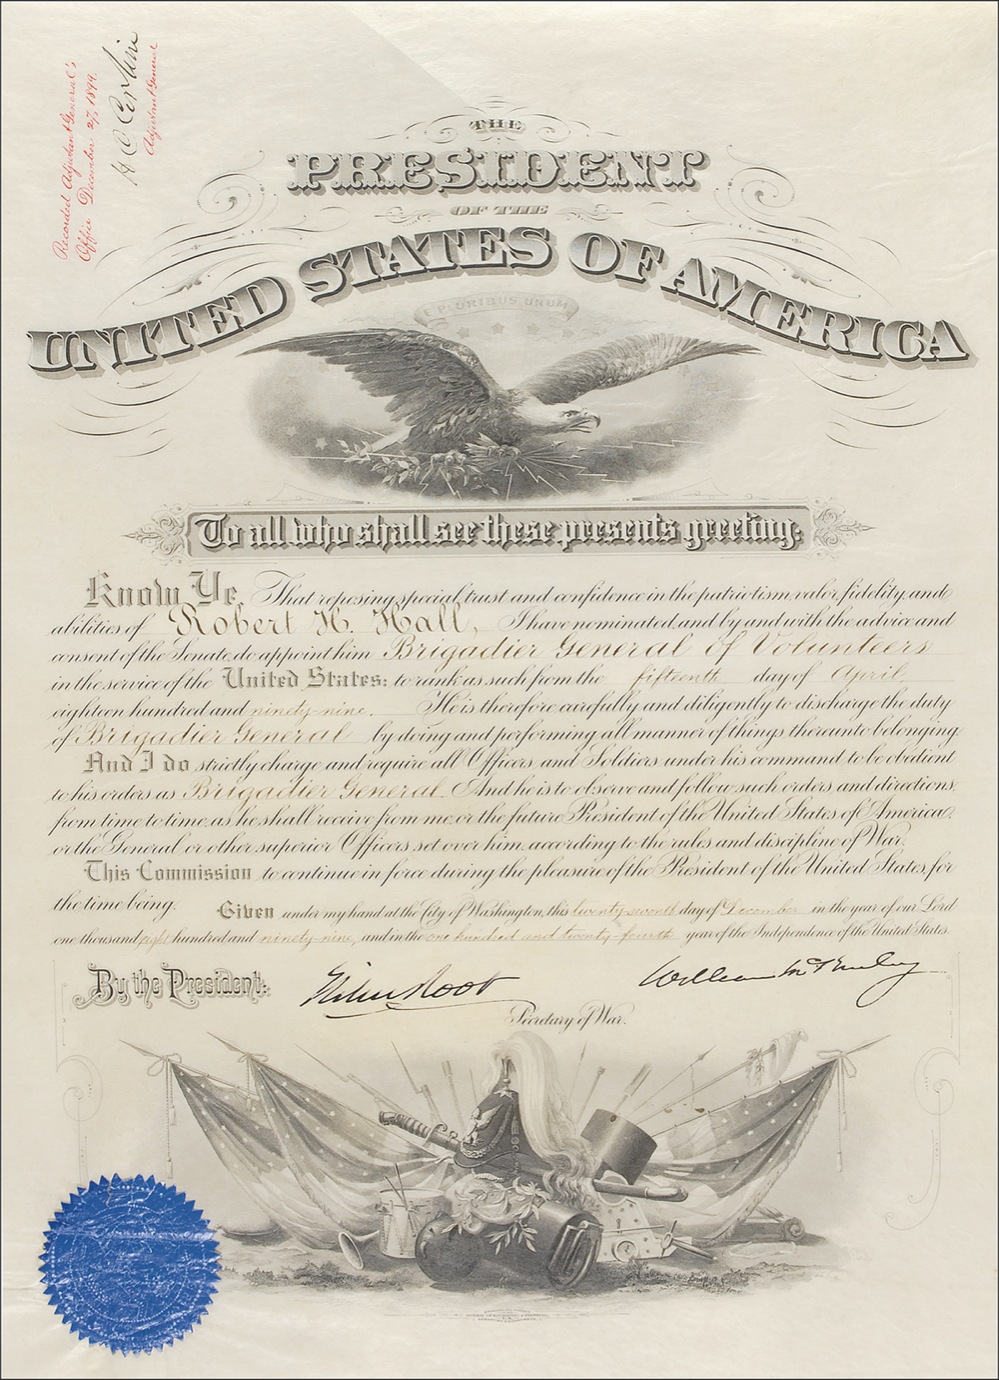 Recorded Adjutant General's
Office December 27, 1899.
H C Corbin
Adjutant General
THE
PRESIDENT
OF THE
UNITED STATES OF AMERICA
E PLURIBUS UNUM
To all who shall see these presents greeting:
Know Ye, That reposing special trust and confidence in the patriotism, valor, fidelity, and
abilities of Robert H. Hall, I have nominated, and by and with the advice and
consent of the Senate, do appoint him Brigadier General of Volunteers
in the service of the United States: to rank as such from the fifteenth day of April,
eighteen hundred and ninety-nine. He is therefore carefully and diligently to discharge the duty
of Brigadier General by doing and performing all manner of things thereunto belonging.
And I do strictly charge and require all Officers and Soldiers under his command to be obedient
to his orders as Brigadier General. And he is to observe and follow such orders and directions,
from time to time, as he shall receive from me, or the future President of the United States of America,
or the General or other superior Officers set over him, according to the rules and discipline of War.
This Commission to continue in force during the pleasure of the President of the United States, for
the time being. Given under my hand at the City of Washington, this twenty-seventh day of December in the year of our Lord
one thousand eight hundred and ninety-nine, and in the one hundred and twenty-fourth year of the Independence of the United States.
By the President: Elihu Root William McKinley
Secretary of War.